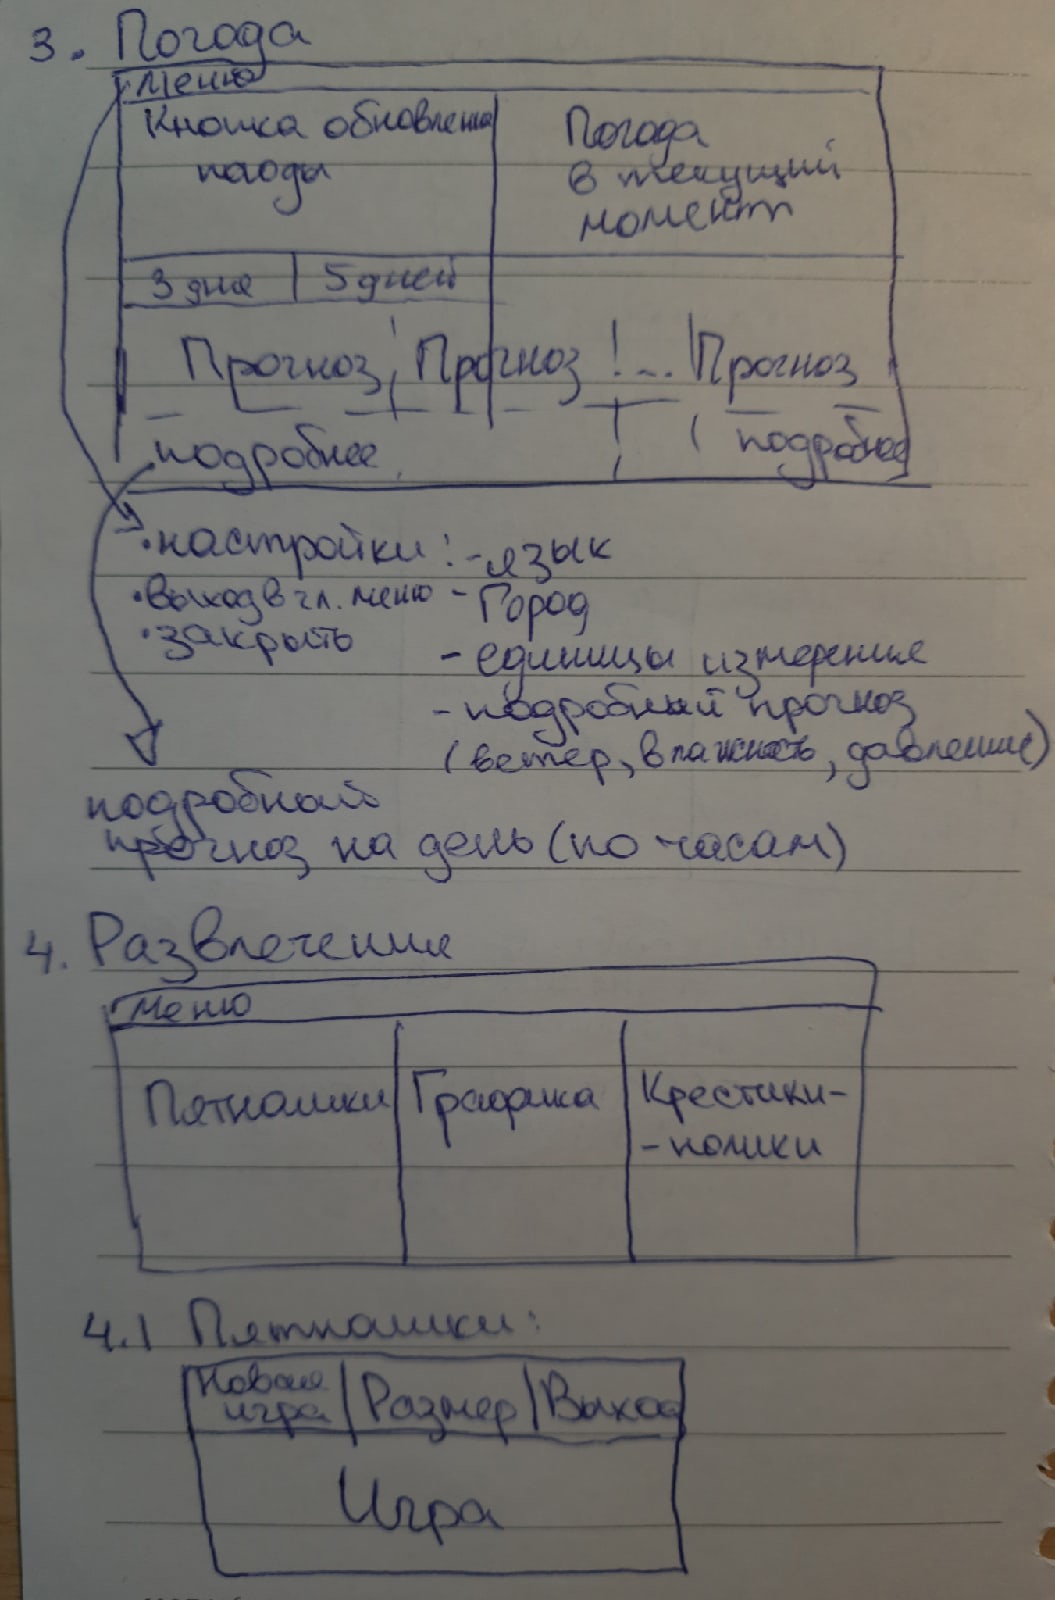 3. Погода
Меню
Кнопка обновления
погоды
Погода
в текущий
момент
3 дня 5 дней
Прогноз Прогноз ... Прогноз
подробнее подробнее
• настройки: - язык
• выход в гл. меню - Город
• закрыть
- единицы измерения
- подробный прогноз
(ветер, влажность, давление)
подробный
прогноз на день (по часам)
4. Развлечения
Меню
Пятнашки Графика Крестики-
-нолики
4.1 Пятнашки:
Новая
игра Размер Выход
Игра